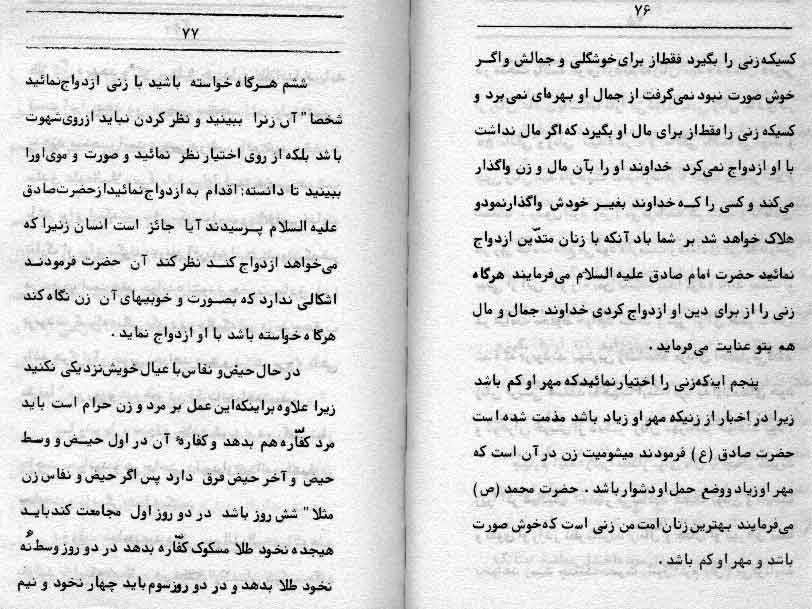 ۷۶
کسیکه زنی را بگیرد فقط از برای خوشگلی و جمالش و اگر
خوش صورت نبود نمی‌گرفت از جمال او بهره‌ای نمی‌برد و
کسیکه زنی را فقط از برای مال او بگیرد که اگر مال نداشت
با او ازدواج نمی‌کرد خداوند او را بآن مال و زن واگذار
می‌کند و کسی را که خداوند بغیر خودش واگذار نمود و
هلاک خواهد شد بر شما باد آنکه با زنان متدیّن ازدواج
نمائید حضرت امام صادق علیه السلام می‌فرمایند هرگاه
زنی را از برای دین او ازدواج کردی خداوند جمال و مال
همه بتو عنایت می‌فرماید .
پنجم اینکه زنی را اختیار نمائید که مهر او کم باشد
زیرا در اخبار از زنیکه مهر او زیاد باشد مذمت شده است
حضرت صادق (ع) فرمودند میشومیت زن در آن است که
مهر او زیاد و وضع حمل او دشوار باشد . حضرت محمد (ص)
می‌فرمایند بهترین زنان امت من زنی است که خوش صورت
باشد و مهر او کم باشد .
۷۷
ششم هرگاه خواسته باشید با زنی ازدواج نمائید
شخصا" آن زنرا ببینید و نظر کردن نباید از روی شهوت
باشد بلکه از روی اختیار نظر نمائید و صورت و موی او را
ببینید تا دانسته: اقدام به ازدواج نمائید از حضرت صادق
علیه السلام پرسیدند آیا جائز است انسان زنیرا که
می‌خواهد ازدواج کند نظر کند آن حضرت فرمودند
اشکالی ندارد که بصورت و خوبیهای آن زن نگاه کند
هرگاه خواسته باشد با او ازدواج نماید .
در حال حیض و نفاس با عیال خویش نزدیکی نکنید
زیرا علاوه بر اینکه این عمل بر مرد و زن حرام است باید
مرد کفّاره هم بدهد و کفارهٔ آن در اول حیض و وسط
حیض و آخر حیض فرق دارد پس اگر حیض و نفاس زن
مثلا" شش روز باشد در دو روز اول مجامعت کند باید
هیجده نخود طلا مسکوک کفّاره بدهد در دو روز وسط نُه
نخود طلا بدهد و در دو روز سوم باید چهار نخود و نیم